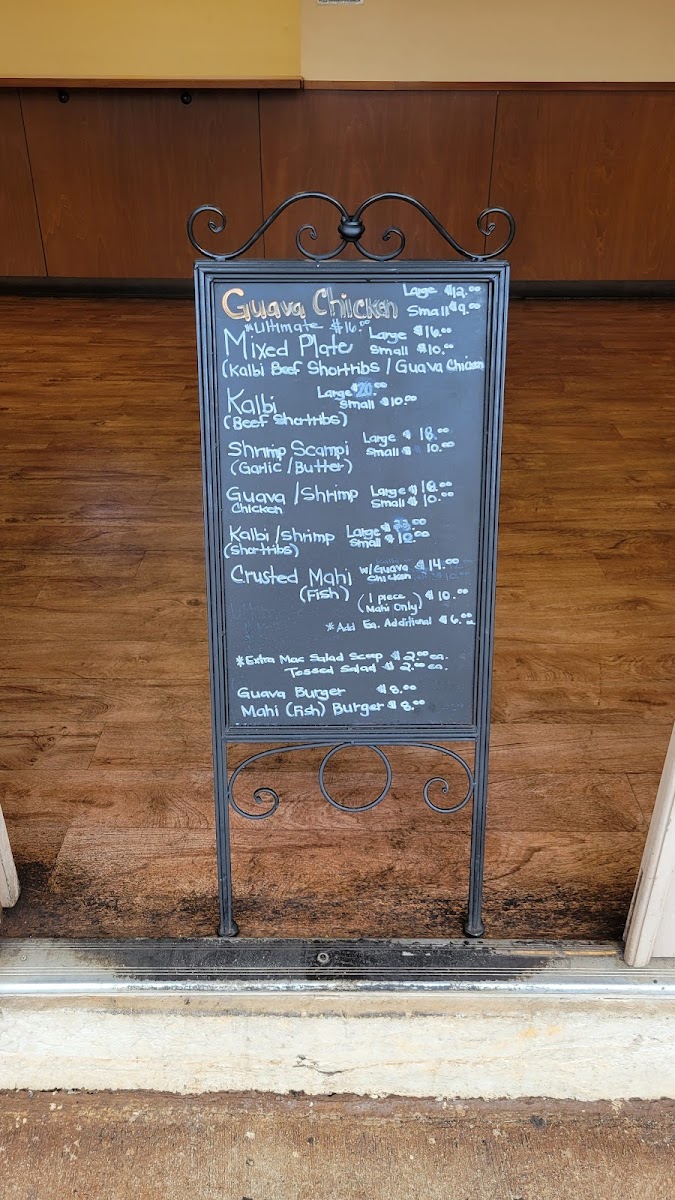 Guava Chicken Large $12.00
Small $9.00
*Ultimate $16.00
Mixed Plate Large $16.00
Small $10.00
(Kalbi Beef Shortribs / Guava Chicken
Kalbi Large $20.00
Small $10.00
(Beef Shortribs)
Shrimp Scampi Large $18.00
(Garlic/Butter) Small $10.00
Guava /Shrimp Large $18.00
Chicken Small $10.00
Kalbi /shrimp Large $22.00
(Shortribs) Small $10.00
Crusted Mahi w/Guava $14.00
Chicken
(Fish) (1 piece $10.00
Mahi Only)
*Add Ea. Additional $6.00
*Extra Mac Salad Scoop $2.00 ea.
Tossed Salad $2.00 ea.
Guava Burger $8.00
Mahi (Fish) Burger $8.00